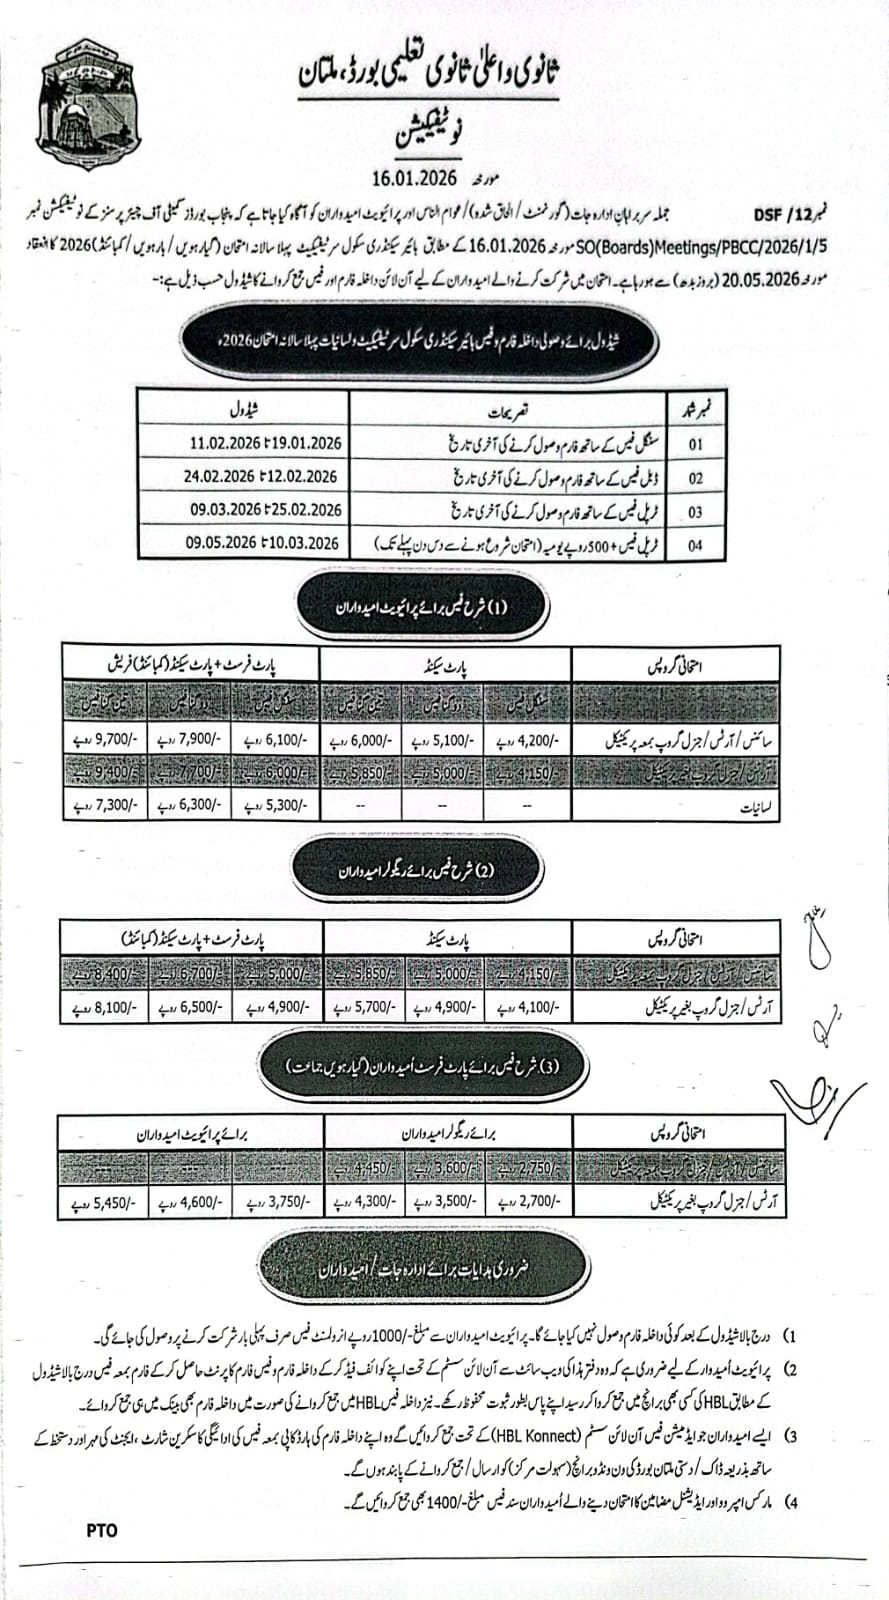 ثانوی و اعلیٰ ثانوی تعلیمی بورڈ، ملتان
نوٹیفیکیشن
مورخہ 16.01.2026
نمبر12/ DSF جملہ سربراہان ادارہ جات (گورنمنٹ / الحاق شدہ)/عوام الناس اور پرائیویٹ امیدواران کو آگاہ کیا جاتا ہے کہ پنجاب بورڈز کمیٹی آف چیئرپرسنز کے نوٹیفیکشن نمبر
SO(Boards)Meetings/PBCC/2026/1/5 مورخہ 16.01.2026 کے مطابق ہائیر سیکنڈری سکول سرٹیفیکیٹ پہلا سالانہ امتحان (گیارہویں / بارہویں / کمبائنڈ)2026 کا انعقاد
مورخہ 20.05.2026 (بروز بدھ) سے ہو رہا ہے۔ امتحان میں شرکت کرنے والے امیدواران کے لیے آن لائن داخلہ فارم اور فیس جمع کروانے کا شیڈول حسب ذیل ہے:-
شیڈول برائے وصولی داخلہ فارم و فیس ہائیر سیکنڈری سکول سرٹیفیکیٹ و لسانیات پہلا سالانہ امتحان 2026ء
نمبر شمار تصریحات شیڈول
01 سنگل فیس کے ساتھ فارم وصول کرنے کی آخری تاریخ 19.01.2026 تا 11.02.2026
02 ڈبل فیس کے ساتھ فارم وصول کرنے کی آخری تاریخ 12.02.2026 تا 24.02.2026
03 ٹرپل فیس کے ساتھ فارم وصول کرنے کی آخری تاریخ 25.02.2026 تا 09.03.2026
04 ٹرپل فیس + 500 روپے یومیہ (امتحان شروع ہونے سے دس دن پہلے تک) 10.03.2026 تا 09.05.2026
(1) شرح فیس برائے پرائیویٹ امیدواران
امتحانی گروپس پارٹ سیکنڈ پارٹ فرسٹ + پارٹ سیکنڈ (کمبائنڈ) فریش
سنگل فیس دوگنا فیس تین گنا فیس سنگل فیس دوگنا فیس تین گنا فیس
سائنس / آرٹس / جنرل گروپ بمعہ پریکٹیکل 4,200/- روپے 5,100/- روپے 6,000/- روپے 6,100/- روپے 7,900/- روپے 9,700/- روپے
آرٹس / جنرل گروپ بغیر پریکٹیکل 4,150/- روپے 5,000/- روپے 5,850/- روپے 6,000/- روپے 7,700/- روپے 9,400/- روپے
لسانیات -- -- -- 5,300/- روپے 6,300/- روپے 7,300/- روپے
(2) شرح فیس برائے ریگولر امیدواران
امتحانی گروپس پارٹ سیکنڈ پارٹ فرسٹ + پارٹ سیکنڈ (کمبائنڈ)
سائنس / آرٹس / جنرل گروپ بمعہ پریکٹیکل 4,150/- روپے 5,000/- روپے 5,850/- روپے 5,000/- روپے 6,700/- روپے 8,400/- روپے
آرٹس / جنرل گروپ بغیر پریکٹیکل 4,100/- روپے 4,900/- روپے 5,700/- روپے 4,900/- روپے 6,500/- روپے 8,100/- روپے
(3) شرح فیس برائے پارٹ فرسٹ اُمیدواران (گیارہویں جماعت)
امتحانی گروپس برائے ریگولر امیدواران برائے پرائیویٹ امیدواران
سائنس / آرٹس / جنرل گروپ بمعہ پریکٹیکل 2,750/- روپے 3,600/- روپے 4,450/- روپے --- --- ---
آرٹس / جنرل گروپ بغیر پریکٹیکل 2,700/- روپے 3,500/- روپے 4,300/- روپے 3,750/- روپے 4,600/- روپے 5,450/- روپے
ضروری ہدایات برائے ادارہ جات / امیدواران
1) درج بالا شیڈول کے بعد کوئی داخلہ فارم وصول نہیں کیا جائے گا۔ پرائیویٹ امیدواران سے مبلغ-/1000 روپے انرولمنٹ فیس صرف پہلی بار شرکت کرنے پر وصول کی جائے گی۔
2) پرائیویٹ اُمیدوار کے لیے ضروری ہے کہ وہ دفتر ہذا کی ویب سائٹ سے آن لائن سسٹم کے تحت اپنے کوائف فیڈ کر کے داخلہ فارم و فیس فارم کا پرنٹ حاصل کر کے فارم بمعہ فیس درج بالا شیڈول
کے مطابق HBL کی کسی بھی برانچ میں جمع کروا کر رسید اپنے پاس بطور ثبوت محفوظ رکھے۔ نیز داخلہ فیس HBL میں جمع کروانے کی صورت میں داخلہ فارم بھی بینک میں ہی جمع کروائے۔
3) ایسے امیدواران جو ایڈمیشن فیس آن لائن سسٹم (HBL Konnect) کے تحت جمع کروائیں گے وہ اپنے داخلہ فارم کی ہارڈ کاپی بمعہ فیس کی ادائیگی کا سکرین شارٹ ، ایجنٹ کی مہر اور دستخط کے
ساتھ بذریعہ ڈاک / دستی ملتان بورڈ کی ون ونڈو برانچ (سہولت مرکز) کو ارسال / جمع کروانے کے پابند ہوں گے۔
4) مارکس امپروو اور ایڈیشنل مضامین کا امتحان دینے والے اُمیدواران سند فیس مبلغ-/1400 بھی جمع کروائیں گے۔
PTO